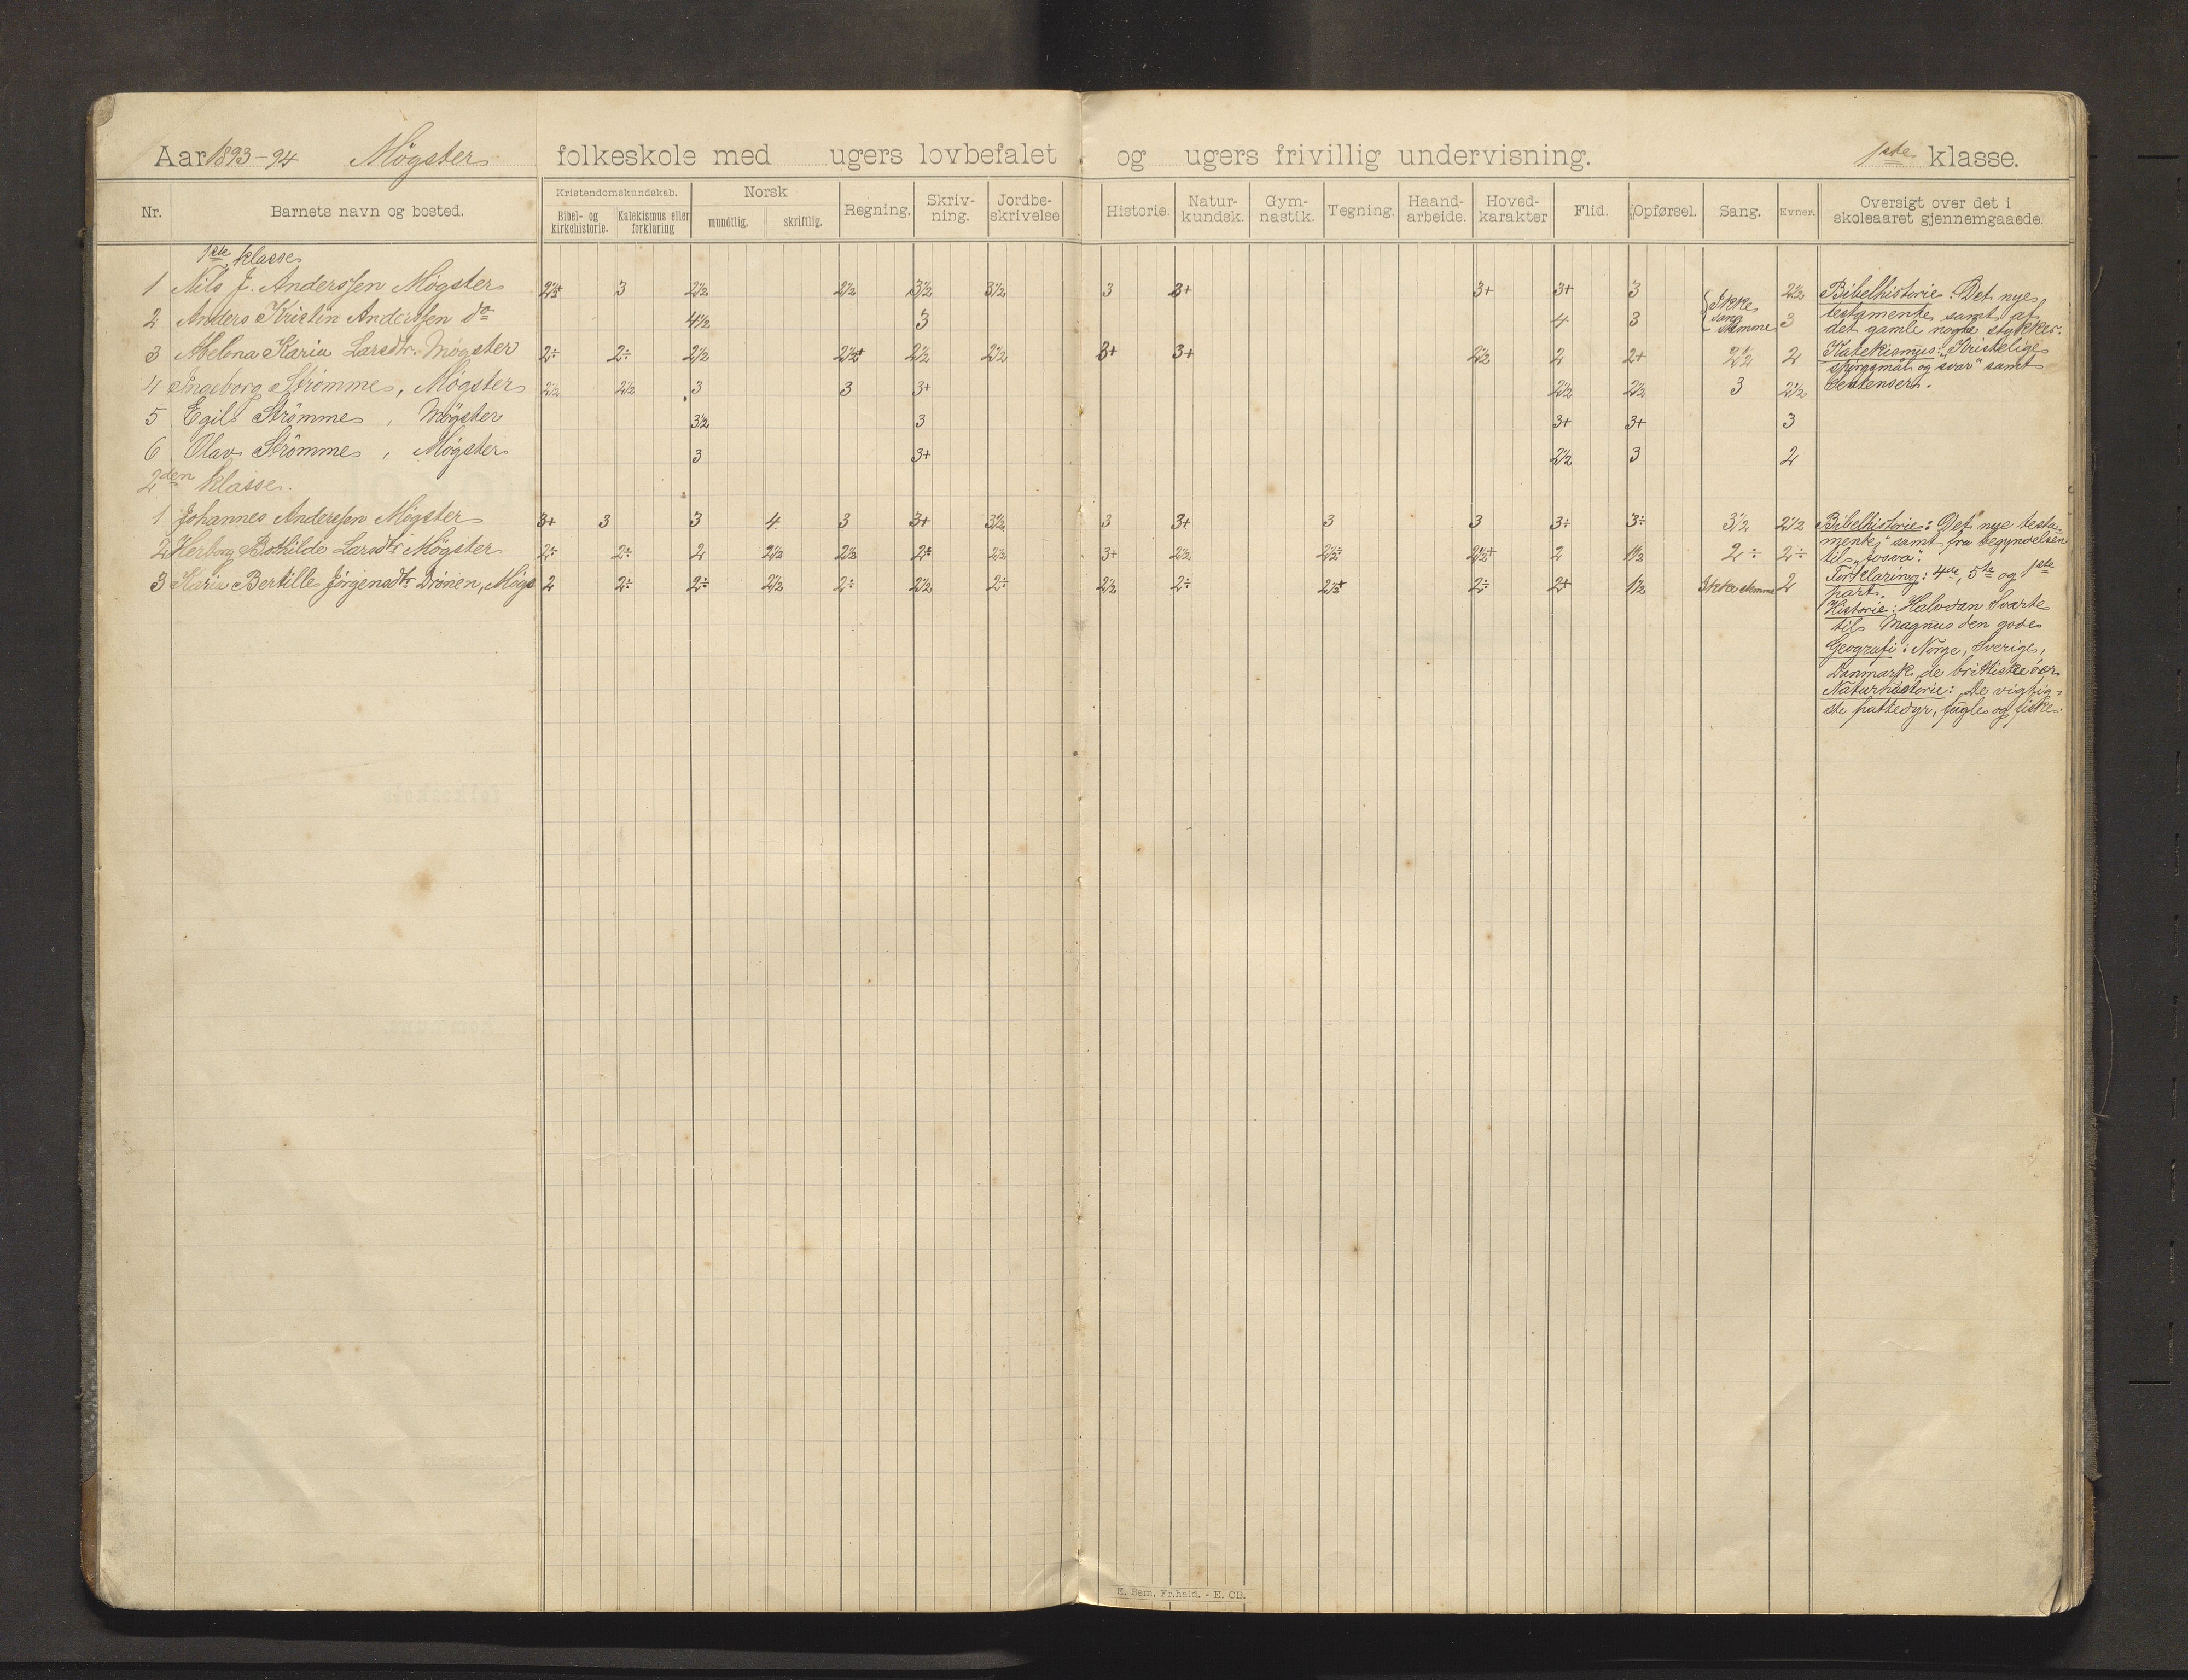 Aar 1893-94 Møgster folkeskole med ugers lovbefalet og ugers frivillig undervisning. 1ste klasse.
Nr. Barnets navn og bosted. Kristendomskundskab. Bibel- og kirkehistorie. Katekismus eller forklaring Norsk mundtlig. skriftlig. Regning. Skriv-ning. Jordbe-skrivelse Historie. Natur-kundsk. Gym-nastik. Tegning. Haand-arbeide. Hoved-karakter Flid. Opførsel. Sang. Evner. Oversigt over det i skoleaaret gjennemgaaede.
1ste klasse
1 Nils J. Anderssen Møgster 2½+ 3 2½ 2½ 3½ 3½ 3 3+ 3+ 3+ 3 2½
2 Anders Kristin Anderssen do 4½ 3 4 3 Ikke sang stemme 3
3 Abelona Karia Larsdtr. Møgster 2÷ 2÷ 2½ 2½+ 2½ 2½ 3+ 3+ 2½ 2 2+ 2½ 2
4 Ingeborg Strømme, Møgster 2½ 2½ 3 3 3+ 2½ 2½ 3 2½
5 Egil Strømme, Møgster 3½ 3 3+ 3+ 3
6 Olav Strømme, Møgster 3 3+ 2½ 3 2
Bibelhistorie: Det nye
testamente samt af
det gamle nogle stykker.
Katekismus: "Kristelige
spørgsmål og svar" samt
Sentenser.
2den klasse.
1 Johannes Anderssen Møgster 3+ 3 3 4 3 3+ 3½ 3 3+ 3 3 3÷ 3÷ 3½ 2½
2 Herborg Bothilde Larsdtr Møgster 2÷ 2÷ 2 2½ 2½ 2÷ 2½ 3+ 2½ 2½÷ 2½+ 2 1½ 2÷ 2÷
3 Karia Bertille Jørgensdtr Drönen, Møgs 2 2÷ 2÷ 2½ 2÷ 2½ 2÷ 2½ 2÷ 2½+ 2÷ 2+ 1½ Ikke stemme 2
Bibelhistorie: Det nye testa-
mente, samt fra begyndelsen
til "Josva".
Forklaring: 4de, 5te og 1ste
part.
Historie: Halvdan Svarte
til Magnus den gode
Geografi: Norge, Sverige,
Danmark, de brittiske öer.
Naturhistorie: De vigtig-
ste pattedyr, fugle og fiske.
E. Sem. Fr.hald. - E. CB.